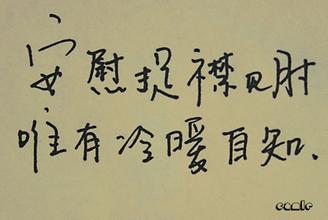 安慰提襟见肘
唯有冷暖自知.
comic